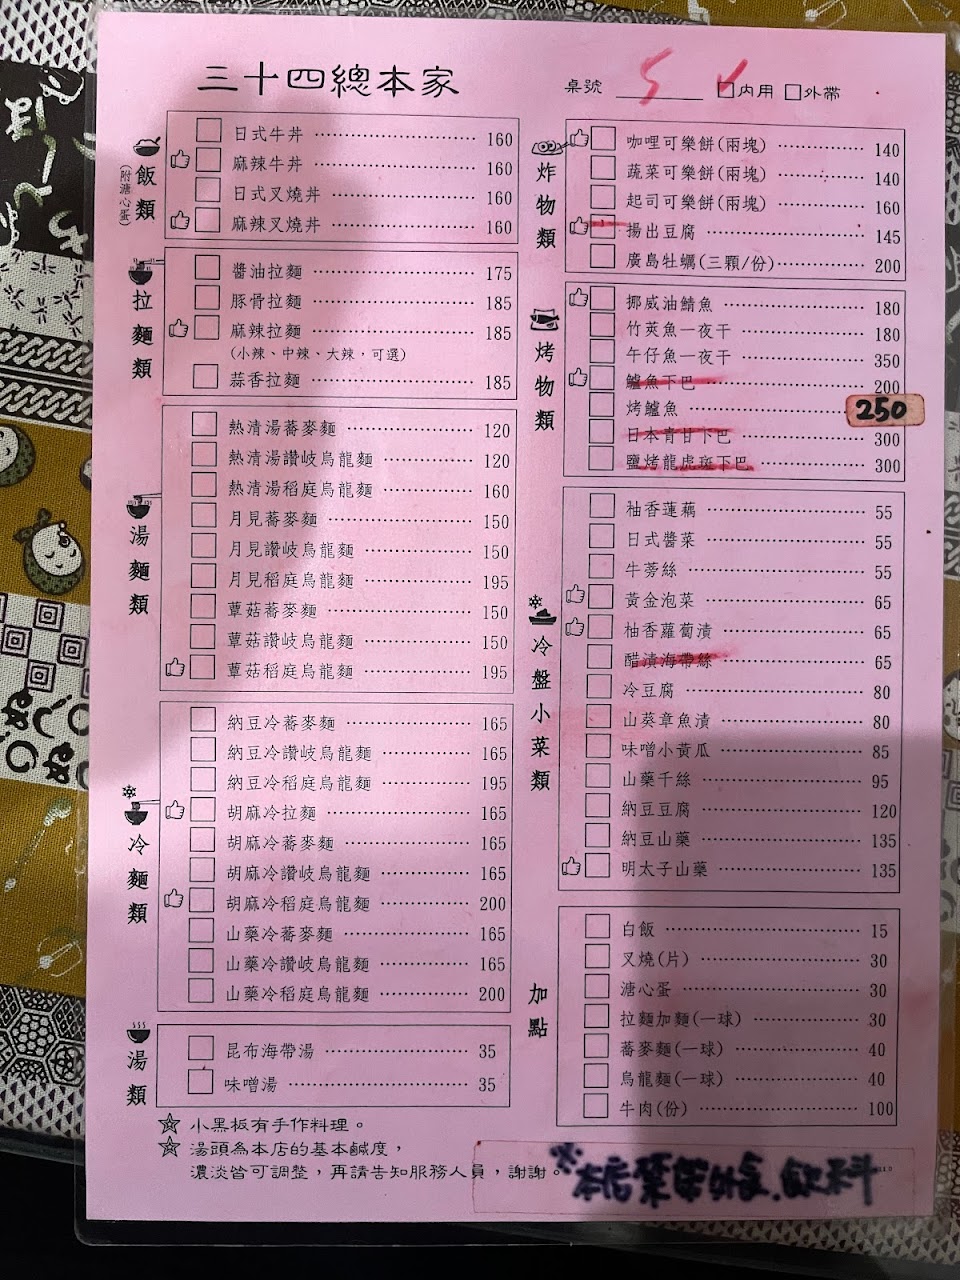 三十四總本家
桌號 5 ✓ □內用 □外帶
飯類
(附溏心蛋)
日式牛丼 160
麻辣牛丼 160
日式叉燒丼 160
麻辣叉燒丼 160
拉麵類
醬油拉麵 175
豚骨拉麵 185
麻辣拉麵 185
(小辣、中辣、大辣,可選)
蒜香拉麵 185
湯麵類
熱清湯蕎麥麵 120
熱清湯讚岐烏龍麵 120
熱清湯稻庭烏龍麵 160
月見蕎麥麵 150
月見讚岐烏龍麵 150
月見稻庭烏龍麵 195
蕈菇蕎麥麵 150
蕈菇讚岐烏龍麵 150
蕈菇稻庭烏龍麵 195
冷麵類
納豆冷蕎麥麵 165
納豆冷讚岐烏龍麵 165
納豆冷稻庭烏龍麵 195
胡麻冷拉麵 165
胡麻冷蕎麥麵 165
胡麻冷讚岐烏龍麵 165
胡麻冷稻庭烏龍麵 200
山藥冷蕎麥麵 165
山藥冷讚岐烏龍麵 165
山藥冷稻庭烏龍麵 200
湯類
昆布海帶湯 35
味噌湯 35
炸物類
咖哩可樂餅(兩塊) 140
蔬菜可樂餅(兩塊) 140
起司可樂餅(兩塊) 160
揚出豆腐 145
廣島牡蠣(三顆/份) 200
烤物類
挪威油鯖魚 180
竹莢魚一夜干 180
午仔魚一夜干 350
鱸魚下巴 200
烤鱸魚 250
日本青甘下巴 300
鹽烤龍虎斑下巴 300
冷盤小菜類
柚香蓮藕 55
日式醬菜 55
牛蒡絲 55
黃金泡菜 65
柚香蘿蔔漬 65
醋漬海帶絲 65
冷豆腐 80
山葵章魚漬 80
味噌小黃瓜 85
山藥千絲 95
納豆豆腐 120
納豆山藥 135
明太子山藥 135
加點
白飯 15
叉燒(片) 30
溏心蛋 30
拉麵加麵(一球) 30
蕎麥麵(一球) 40
烏龍麵(一球) 40
牛肉(份) 100
☆ 小黑板有手作料理。
☆ 湯頭為本店的基本鹹度,
濃淡皆可調整,再請告知服務人員,謝謝。
※本店禁帶外食.飲料